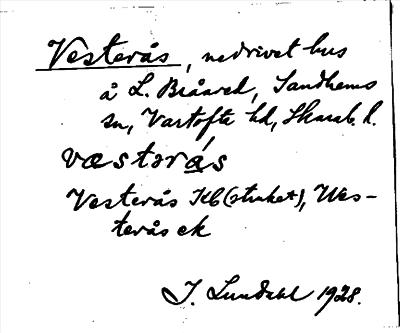 Vesterås, nedrivet hus
å L. Bråared, Sandhems
sn, Vartofta hd, Skarab. l.
væstərás
Vesterås Kb (struket), Wes-
terås ek
J. Lundahl 1928.